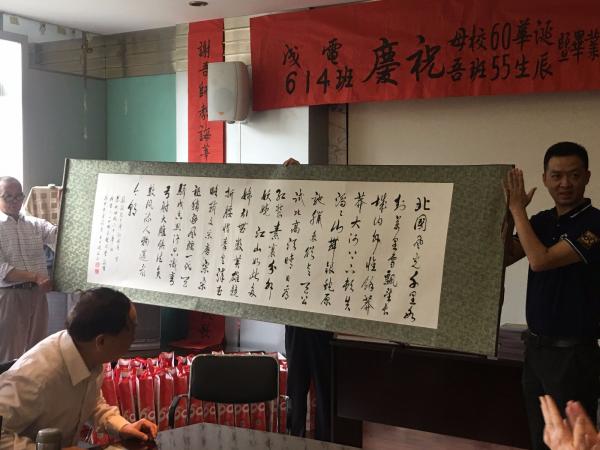 成電
614班
慶祝
母校60華诞
吾班55生辰
暨畢業
謝吾師教誨華
北國風光千里冰
封萬里雪飄望長
城内外惟餘莽
莽大河上下頓失
滔滔山舞銀蛇原
馳蠟象欲與天公
試比高須晴日看
紅裝素裹分外
妖嬈江山如此多
嬌引無數英雄競
折腰惜秦皇漢武
略輸文采唐宗宋
祖稍遜風騷一代天
驕成吉思汗只識彎
弓射大雕俱往矣
數風流人物還看
今朝